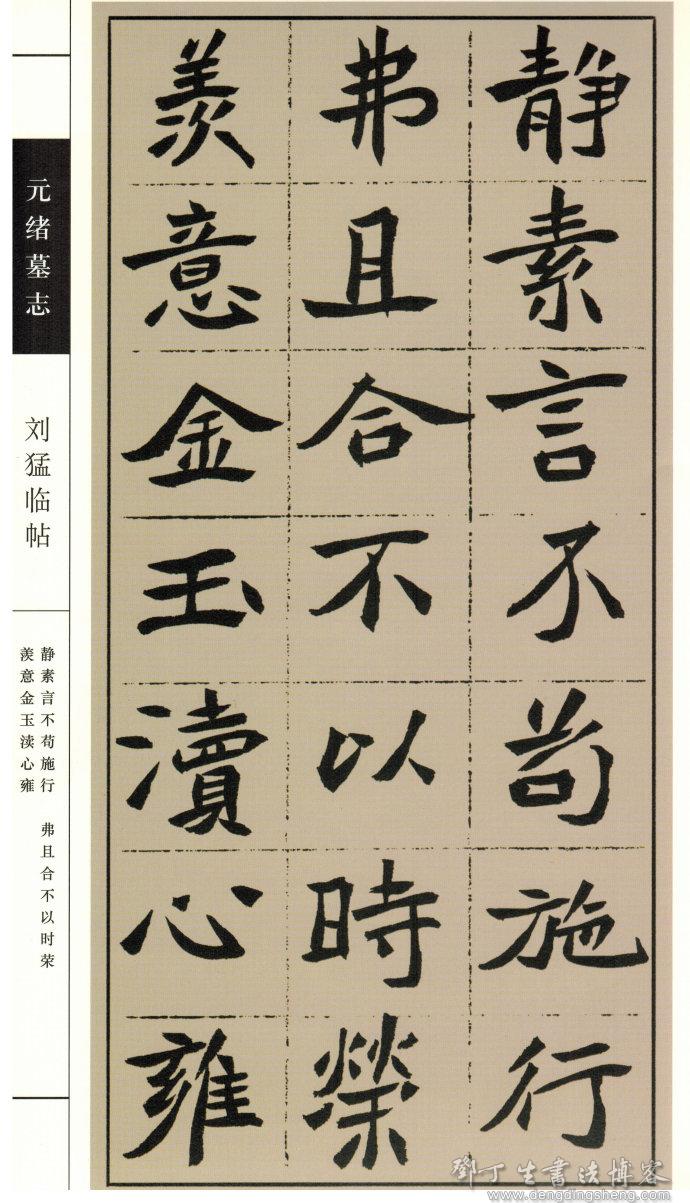 靜素言不苟施行
弗且合不以時榮
羨意金玉瀆心雍
元绪墓志
刘猛临帖
静素言不苟施行 弗且合不以时荣
羡意金玉渎心雍
鄧丁生書法博客
www.dengdingsheng.com